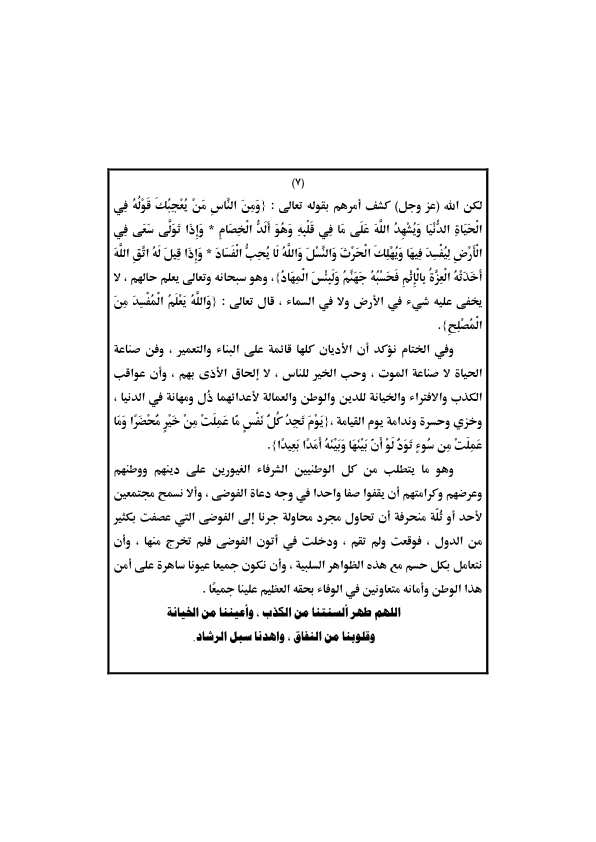 (٧)
لكن الله (عز وجل) كشف أمرهم بقوله تعالى : {وَمِنَ النَّاسِ مَنْ يُعْجِبُكَ قَوْلُهُ فِي
الْحَيَاةِ الدُّنْيَا وَيُشْهِدُ اللَّهَ عَلَى مَا فِي قَلْبِهِ وَهُوَ أَلَدُّ الْخِصَامِ * وَإِذَا تَوَلَّى سَعَى فِي
الْأَرْضِ لِيُفْسِدَ فِيهَا وَيُهْلِكَ الْحَرْثَ وَالنَّسْلَ وَاللَّهُ لَا يُحِبُّ الْفَسَادَ * وَإِذَا قِيلَ لَهُ اتَّقِ اللَّهَ
أَخَذَتْهُ الْعِزَّةُ بِالْإِثْمِ فَحَسْبُهُ جَهَنَّمُ وَلَبِئْسَ الْمِهَادُ}، وهو سبحانه وتعالى يعلم حالهم ، لا
يخفى عليه شيء في الأرض ولا في السماء ، قال تعالى : {وَاللَّهُ يَعْلَمُ الْمُفْسِدَ مِنَ
الْمُصْلِحِ}.
وفي الختام نؤكد أن الأديان كلها قائمة على البناء والتعمير ، وفن صناعة
الحياة لا صناعة الموت ، وحب الخير للناس ، لا إلحاق الأذى بهم ، وأن عواقب
الكذب والافتراء والخيانة للدين والوطن والعمالة لأعدائهما ذُل ومهانة في الدنيا ،
وخزي وحسرة وندامة يوم القيامة ،{يَوْمَ تَجِدُ كُلُّ نَفْسٍ مَّا عَمِلَتْ مِنْ خَيْرٍ مُّحْضَرًا وَمَا
عَمِلَتْ مِن سُوءٍ تَوَدُّ لَوْ أَنَّ بَيْنَهَا وَبَيْنَهُ أَمَدًا بَعِيدًا}.
وهو ما يتطلب من كل الوطنيين الشرفاء الغيورين على دينهم ووطنهم
وعرضهم وكرامتهم أن يقفوا صفا واحدا في وجه دعاة الفوضى ، وألا نسمح مجتمعين
لأحد أو ثُلّة منحرفة أن تحاول مجرد محاولة جرنا إلى الفوضى التي عصفت بكثير
من الدول ، فوقعت ولم تقم ، ودخلت في أتون الفوضى فلم تخرج منها ، وأن
نتعامل بكل حسم مع هذه الظواهر السلبية ، وأن نكون جميعا عيونا ساهرة على أمن
هذا الوطن وأمانه متعاونين في الوفاء بحقه العظيم علينا جميعًا .
اللهم طهر ألسنتنا من الكذب ، وأعيننا من الخيانة
وقلوبنا من النفاق ، واهدنا سبل الرشاد.